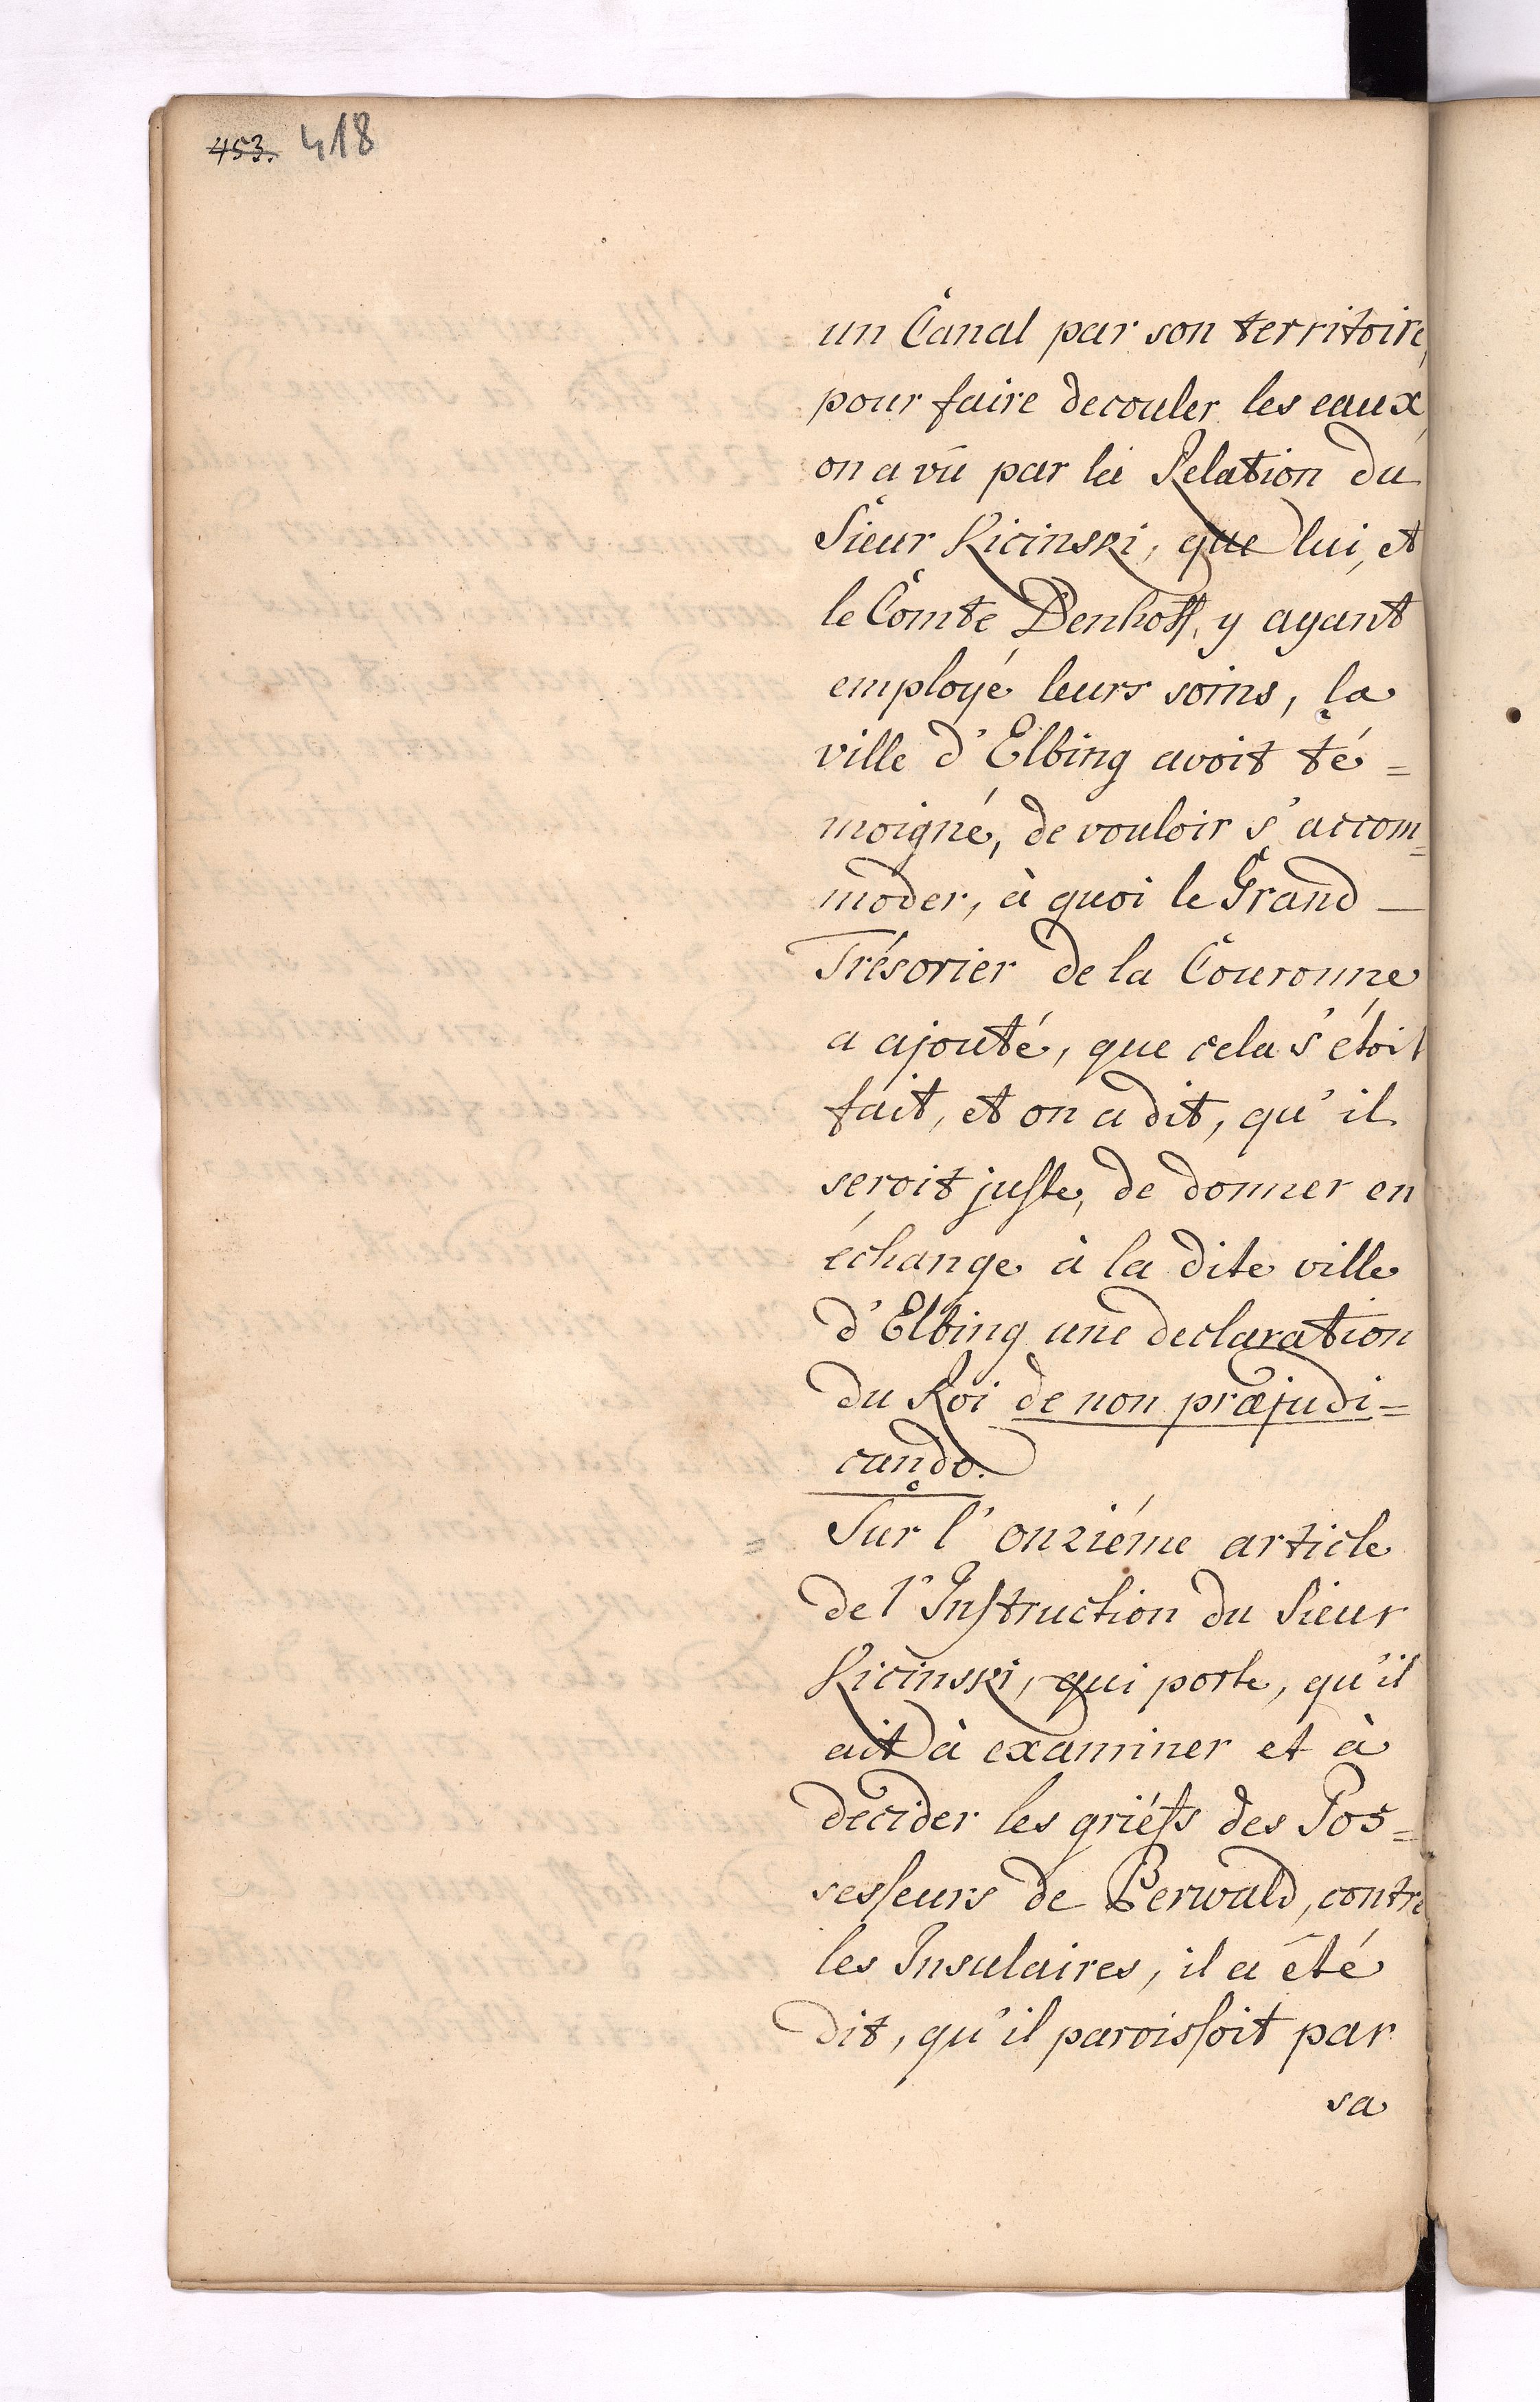 453. 418
un Canal par son territoire,
pour faire decouler les eaux,
on a vû par la Relation du
Sieur Kicinski, que lui, et
le Comte Denhoff, y ayant
employé leurs soins, la
ville d'Elbing avoit té=
moigné, de vouloir s'accom=
moder, à quoi le Grand
Trésorier de la Couronne
a ajouté, que cela s'étoit
fait, et on a dit, qu'il
seroit juste, de donner en
échange à la dite ville
d'Elbing une declaration
du Roi de non præjudi=
cando.
Sur l'onziéme article
de l'Instruction du Sieur
Kicinski, qui porte, qu'il
ait à examiner et à
décider les griéfs des Pos=
sesseurs de Berwald, contre
les Insulaires, il a été
dit, qu'il paroissoit par
sa